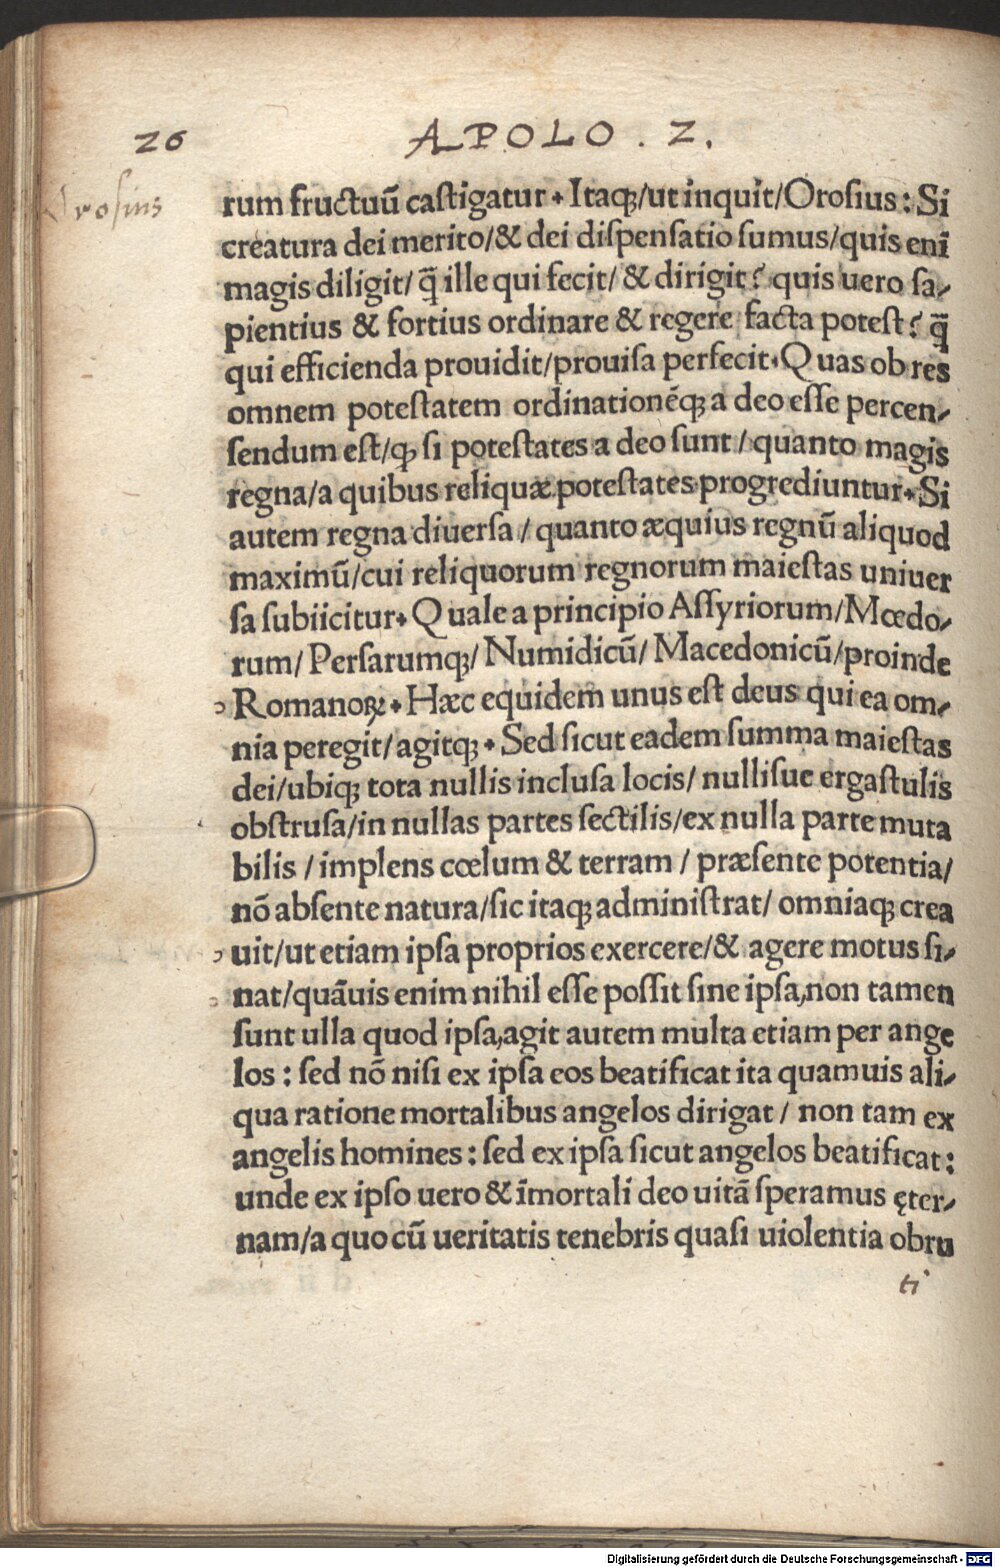 26
APOLO . 2.
Orosius
rum fructuũ castigatur. Itaqꝫ/ut inquit/Orosius: Si
creatura dei merito/& dei dispensatio sumus/quis enĩ
magis diligit/ q̃ ille qui fecit/ & dirigit? quis uero sa-
pientius & fortius ordinare & regere facta potest? q̃
qui efficienda prouidit/prouisa perfecit. Quas ob res
omnem potestatem ordinationẽqꝫ a deo esse percen-
sendum est/qꝫ si potestates a deo sunt/quanto magis
regna/a quibus reliquæ potestates progrediuntur. Si
autem regna diuersa/quanto æquius regnũ aliquod
maximũ/cui reliquorum regnorum maiestas uniuer
sa subiicitur. Quale a principio Assyriorum/Mœdo-
rum/Persarumqꝫ/Numidicũ/Macedonicũ/proinde
Romanoꝝ. Hæc equidem unus est deus qui ea om-
nia peregit/agitqꝫ. Sed sicut eadem summa maiestas
dei/ubiqꝫ tota nullis inclusa locis/nullisue ergastulis
obstrusa/in nullas partes sectilis/ex nulla parte muta
bilis/implens cœlum & terram/præsente potentia/
nõ absente natura/sic itaqꝫ administrat/omniaqꝫ crea
uit/ut etiam ipsa proprios exercere/& agere motus si-
nat/quãuis enim nihil esse possit sine ipsa,non tamen
sunt ulla quod ipsa,agit autem multa etiam per ange
los: sed nõ nisi ex ipsa eos beatificat ita quamuis ali-
qua ratione mortalibus angelos dirigat/non tam ex
angelis homines: sed ex ipsa sicut angelos beatificat:
unde ex ipso uero & ĩmortali deo uitã speramus ęter-
nam/a quo cũ ueritatis tenebris quasi uiolentia obru
ti
Digitalisierung gefördert durch die Deutsche Forschungsgemeinschaft - DFG